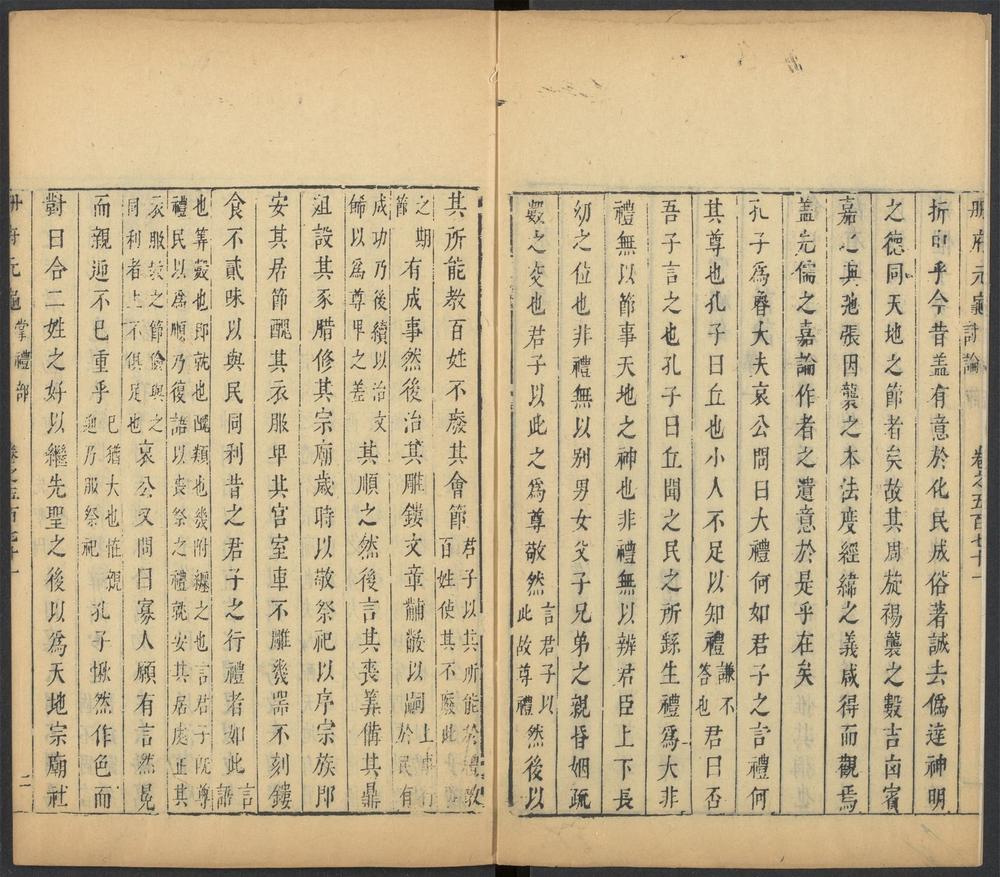 冊府元龜 討論 卷之五百七十一
折中乎今昔盖有意於化民成俗著誠去僞達神明
之德同天地之節者矣故其周旋裼襲之數吉凶賓
嘉之典弛張因襲之本法度經緯之義咸得而觀焉
盖先儒之嘉論作者之遺意於是乎在矣
孔子爲魯大夫哀公問曰大禮何如君子之言禮何
其尊也孔子曰丘也小人不足以知禮謙不答也君曰否
吾子言之也孔子曰丘聞之民之所繇生禮爲大非
禮無以節事天地之神也非禮無以辨君臣上下長
幼之位也非禮無以別男女父子兄弟之親昏姻疏
數之交也君子以此之爲尊敬然言君子以此故尊禮然後以
其所能教百姓不廢其會節君子以其所能於禮教百姓使其不廢此
之期節有成事然後治其雕鏤文章黼黻以嗣上事行於民有
成功乃後續以治文餙以爲尊卑之差其順之然後言其喪筭備其鼎
俎設其豕腊修其宗廟歲時以敬祭祀以序宗族卽
安其居節醜其衣服卑其宮室車不雕幾器不刻鏤
食不貳味以與民同利昔之君子之行禮者如此言語
也筭數也卽就也醜類也幾附纏之也言君子旣尊禮民以爲順乃復語以喪祭之禮就安其居處正其
衣服教之節儉與之同利者上下俱足也哀公又問曰寡人願有言然冕
而親迎不巳重乎巳猶大也怪親迎乃服祭祀孔子愀然作色而
對曰合二姓之好以繼先聖之後以爲天地宗廟社
冊府元龜 掌禮部 卷之五百七十一 二